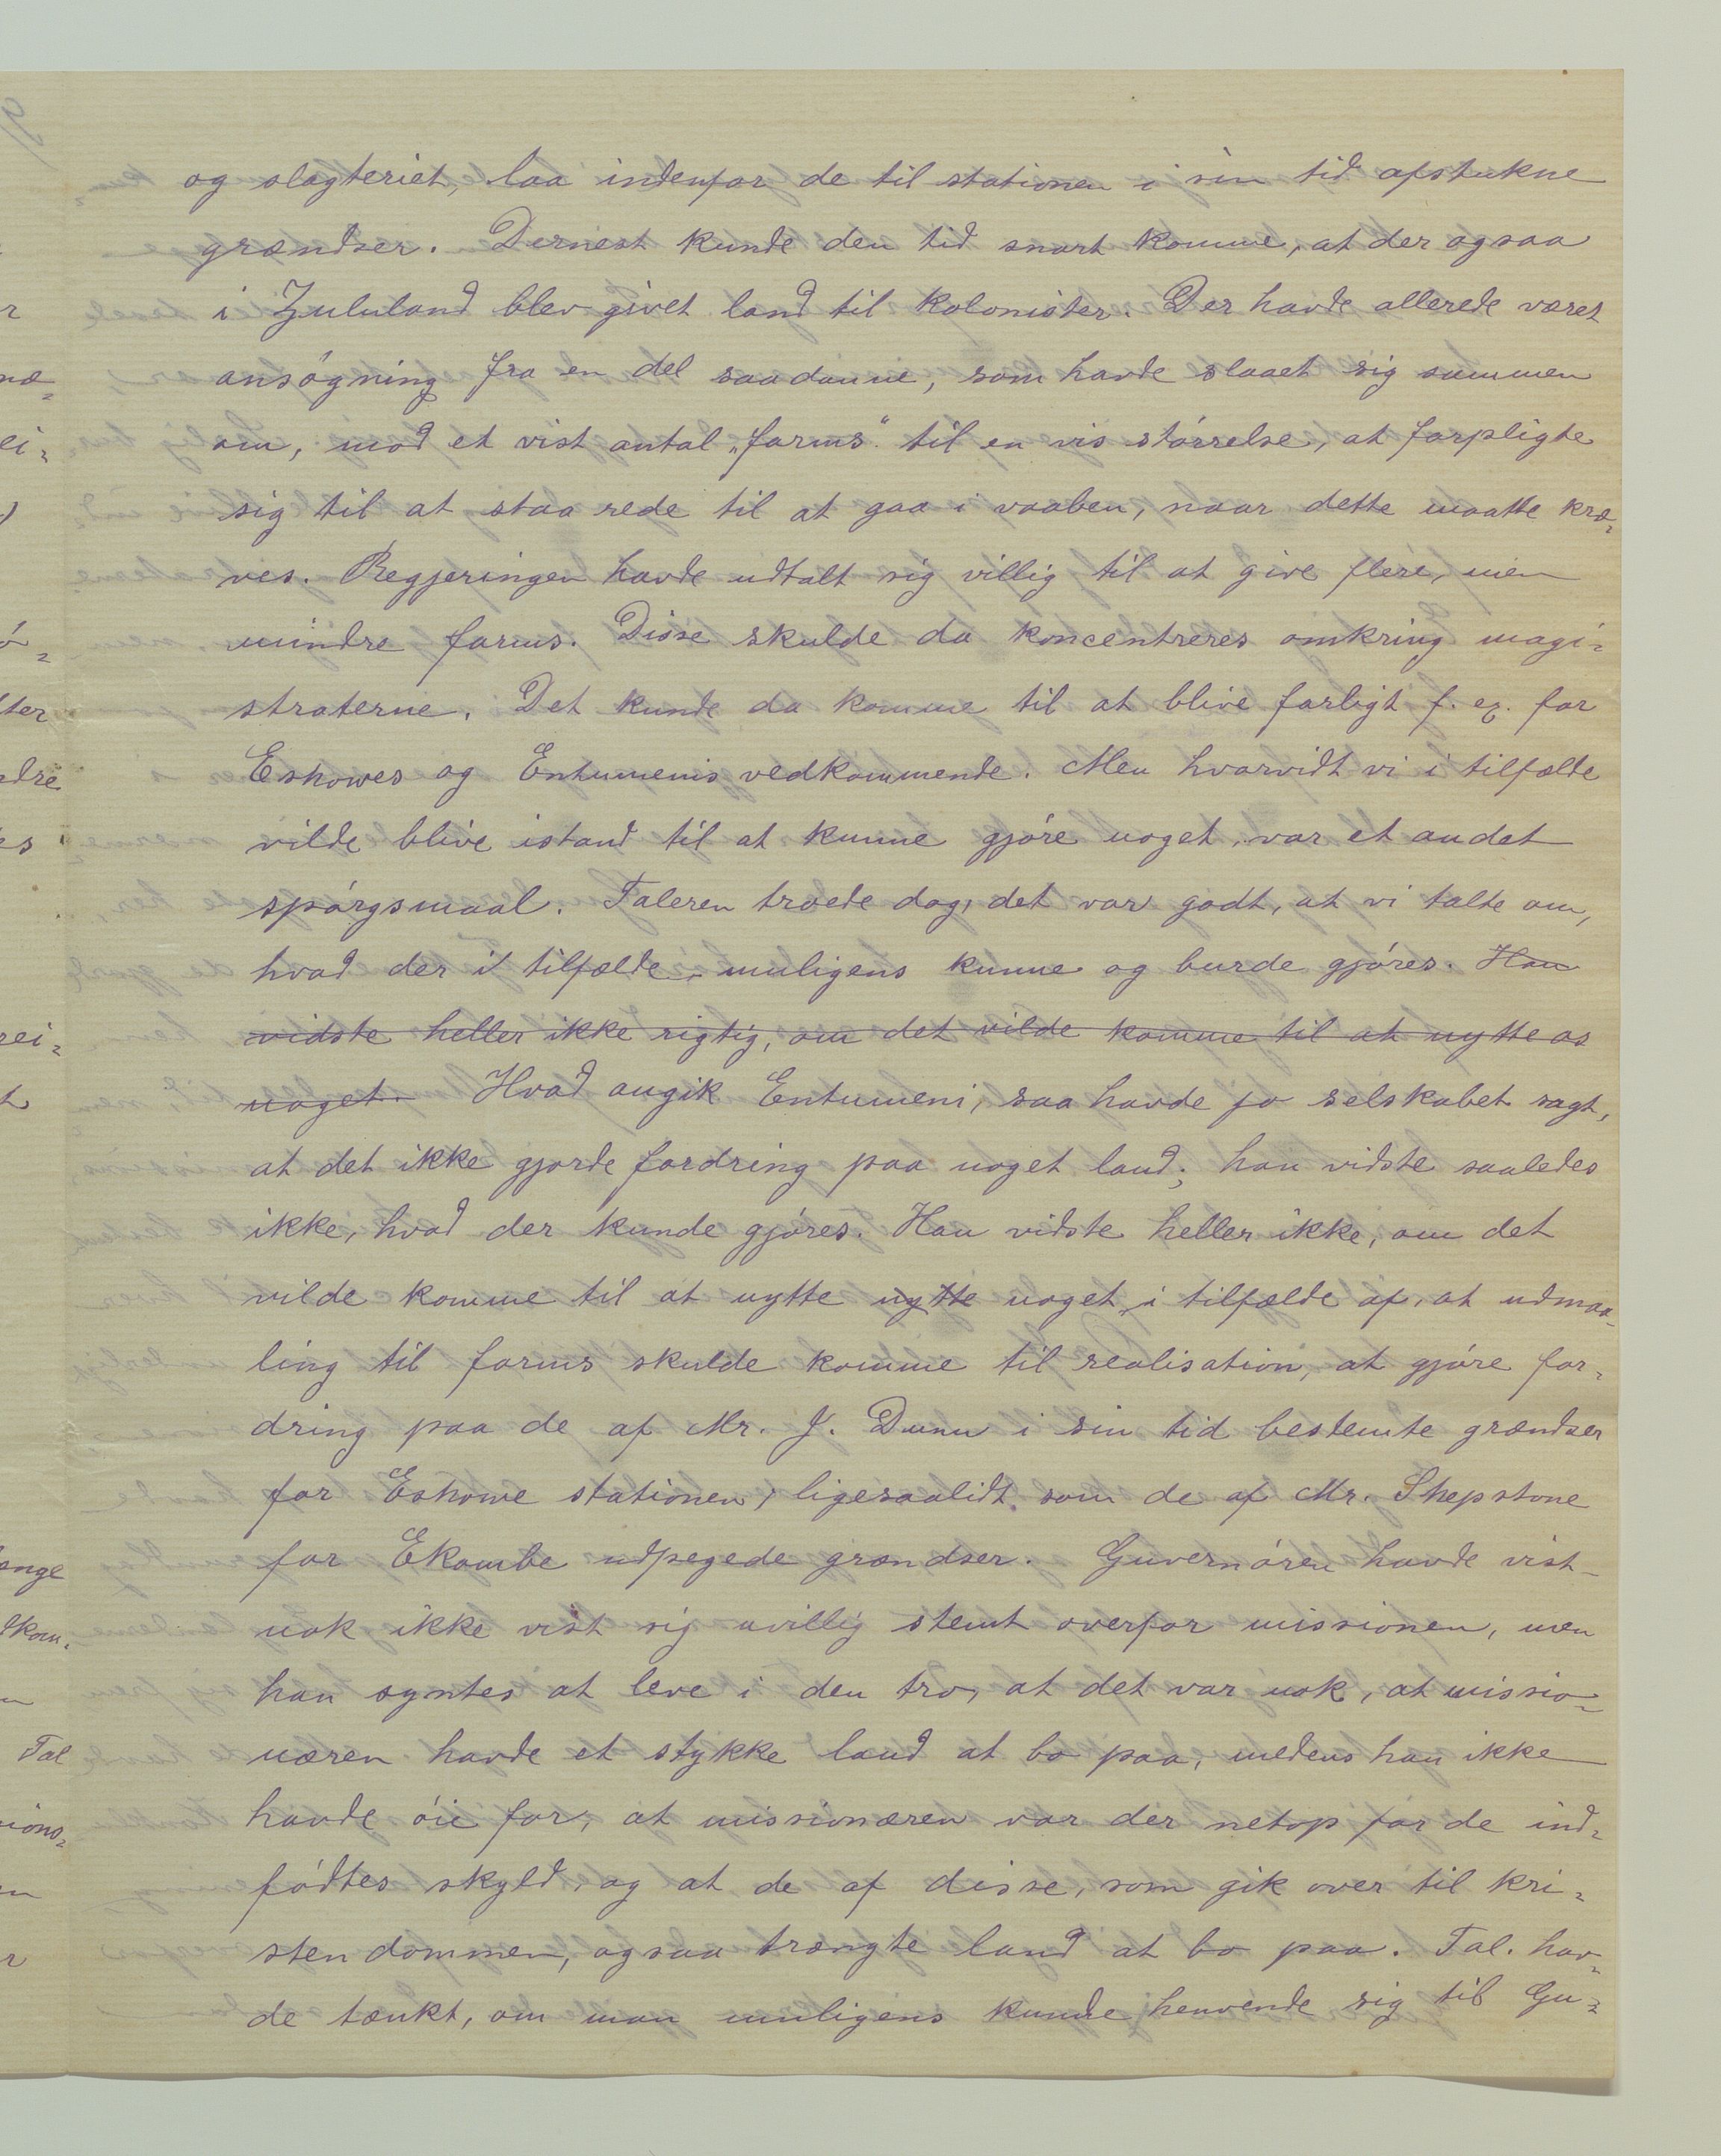 og slagteriet, laa indenfor de til stationen i sin tid afstukne
grændser. Dernest kunde den tid snart komme, at der ogsaa
i Zululand blev givet land til kolonister. Der havde allerede været
ansøgning fra en del saadanne, som havde slaaet sig sammen
om, mod et vist antal „farms“ til en vis størrelse, at forpligte
sig til at staa rede til at gaa i vaaben, naar dette maatte kræ-
ves. Regjeringen havde udtalt sig villig til at give flere, men
mindre farms. Disse skulde da koncentreres omkring magi-
straterne. Det kunde da komme til at blive farligt f. ex. for
Eshowes og Entumenis vedkommende. Men hvorvidt vi i tilfælde
vilde blive istand til at kunne gjøre noget, var et andet
spørgsmaal. Taleren troede dog, det var godt, at vi talte om,
hvad der i tilfælde muligens kunne og burde gjøres. Han
vidste heller ikke rigtig, om det vilde komme til at nytte os
noget. Hvad angik Entumeni, saa havde jo selskabet sagt,
at det ikke gjorde fordring paa noget land; han vidste saaledes
ikke, hvad der kunde gjøres. Han vidste heller ikke, om det
vilde komme til at nytte nytte noget, i tilfælde af, at udmaa-
ling til farms skulde komme til realisation, at gjøre for-
dring paa de af Mr. J. Dunn i sin tid bestemte grændser
for Eshowe stationen, ligesaalidt som de af Mr. Shepstone
for Ekombe udpegede grændser. Guvernøren havde vist-
nok ikke vist sig uvillig stemt overfor missionen, men
han syntes at leve i den tro, at det var nok, at missio-
næren havde et stykke land at bo paa, medens han ikke
havde øie for, at missionæren var der netop for de ind-
fødtes skyld, og at de af disse, som gik over til kri-
stendommen, ogsaa trængte land at bo paa. Tal. hav-
de tænkt, om man muligens kunde henvende sig til Gu-